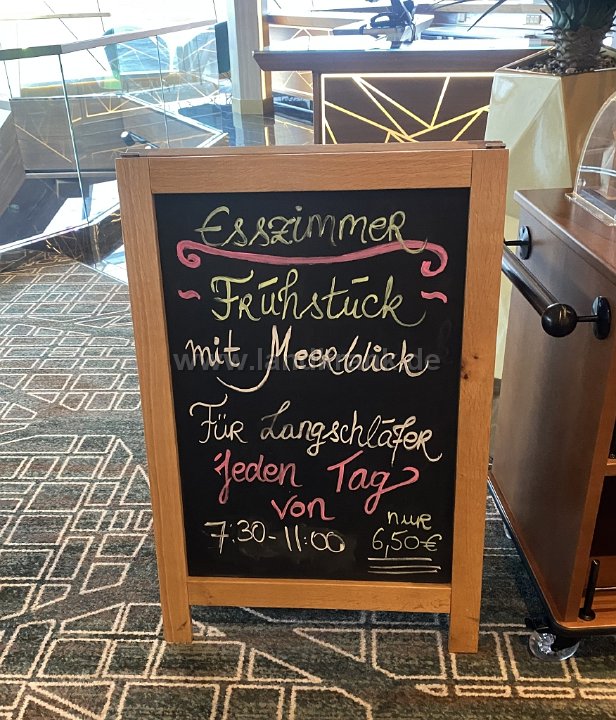 Esszimmer
~ Frühstück ~
mit Meerblick
Für Langschläfer
jeden Tag
von
7:30 - 11:00
nur
6,50 €